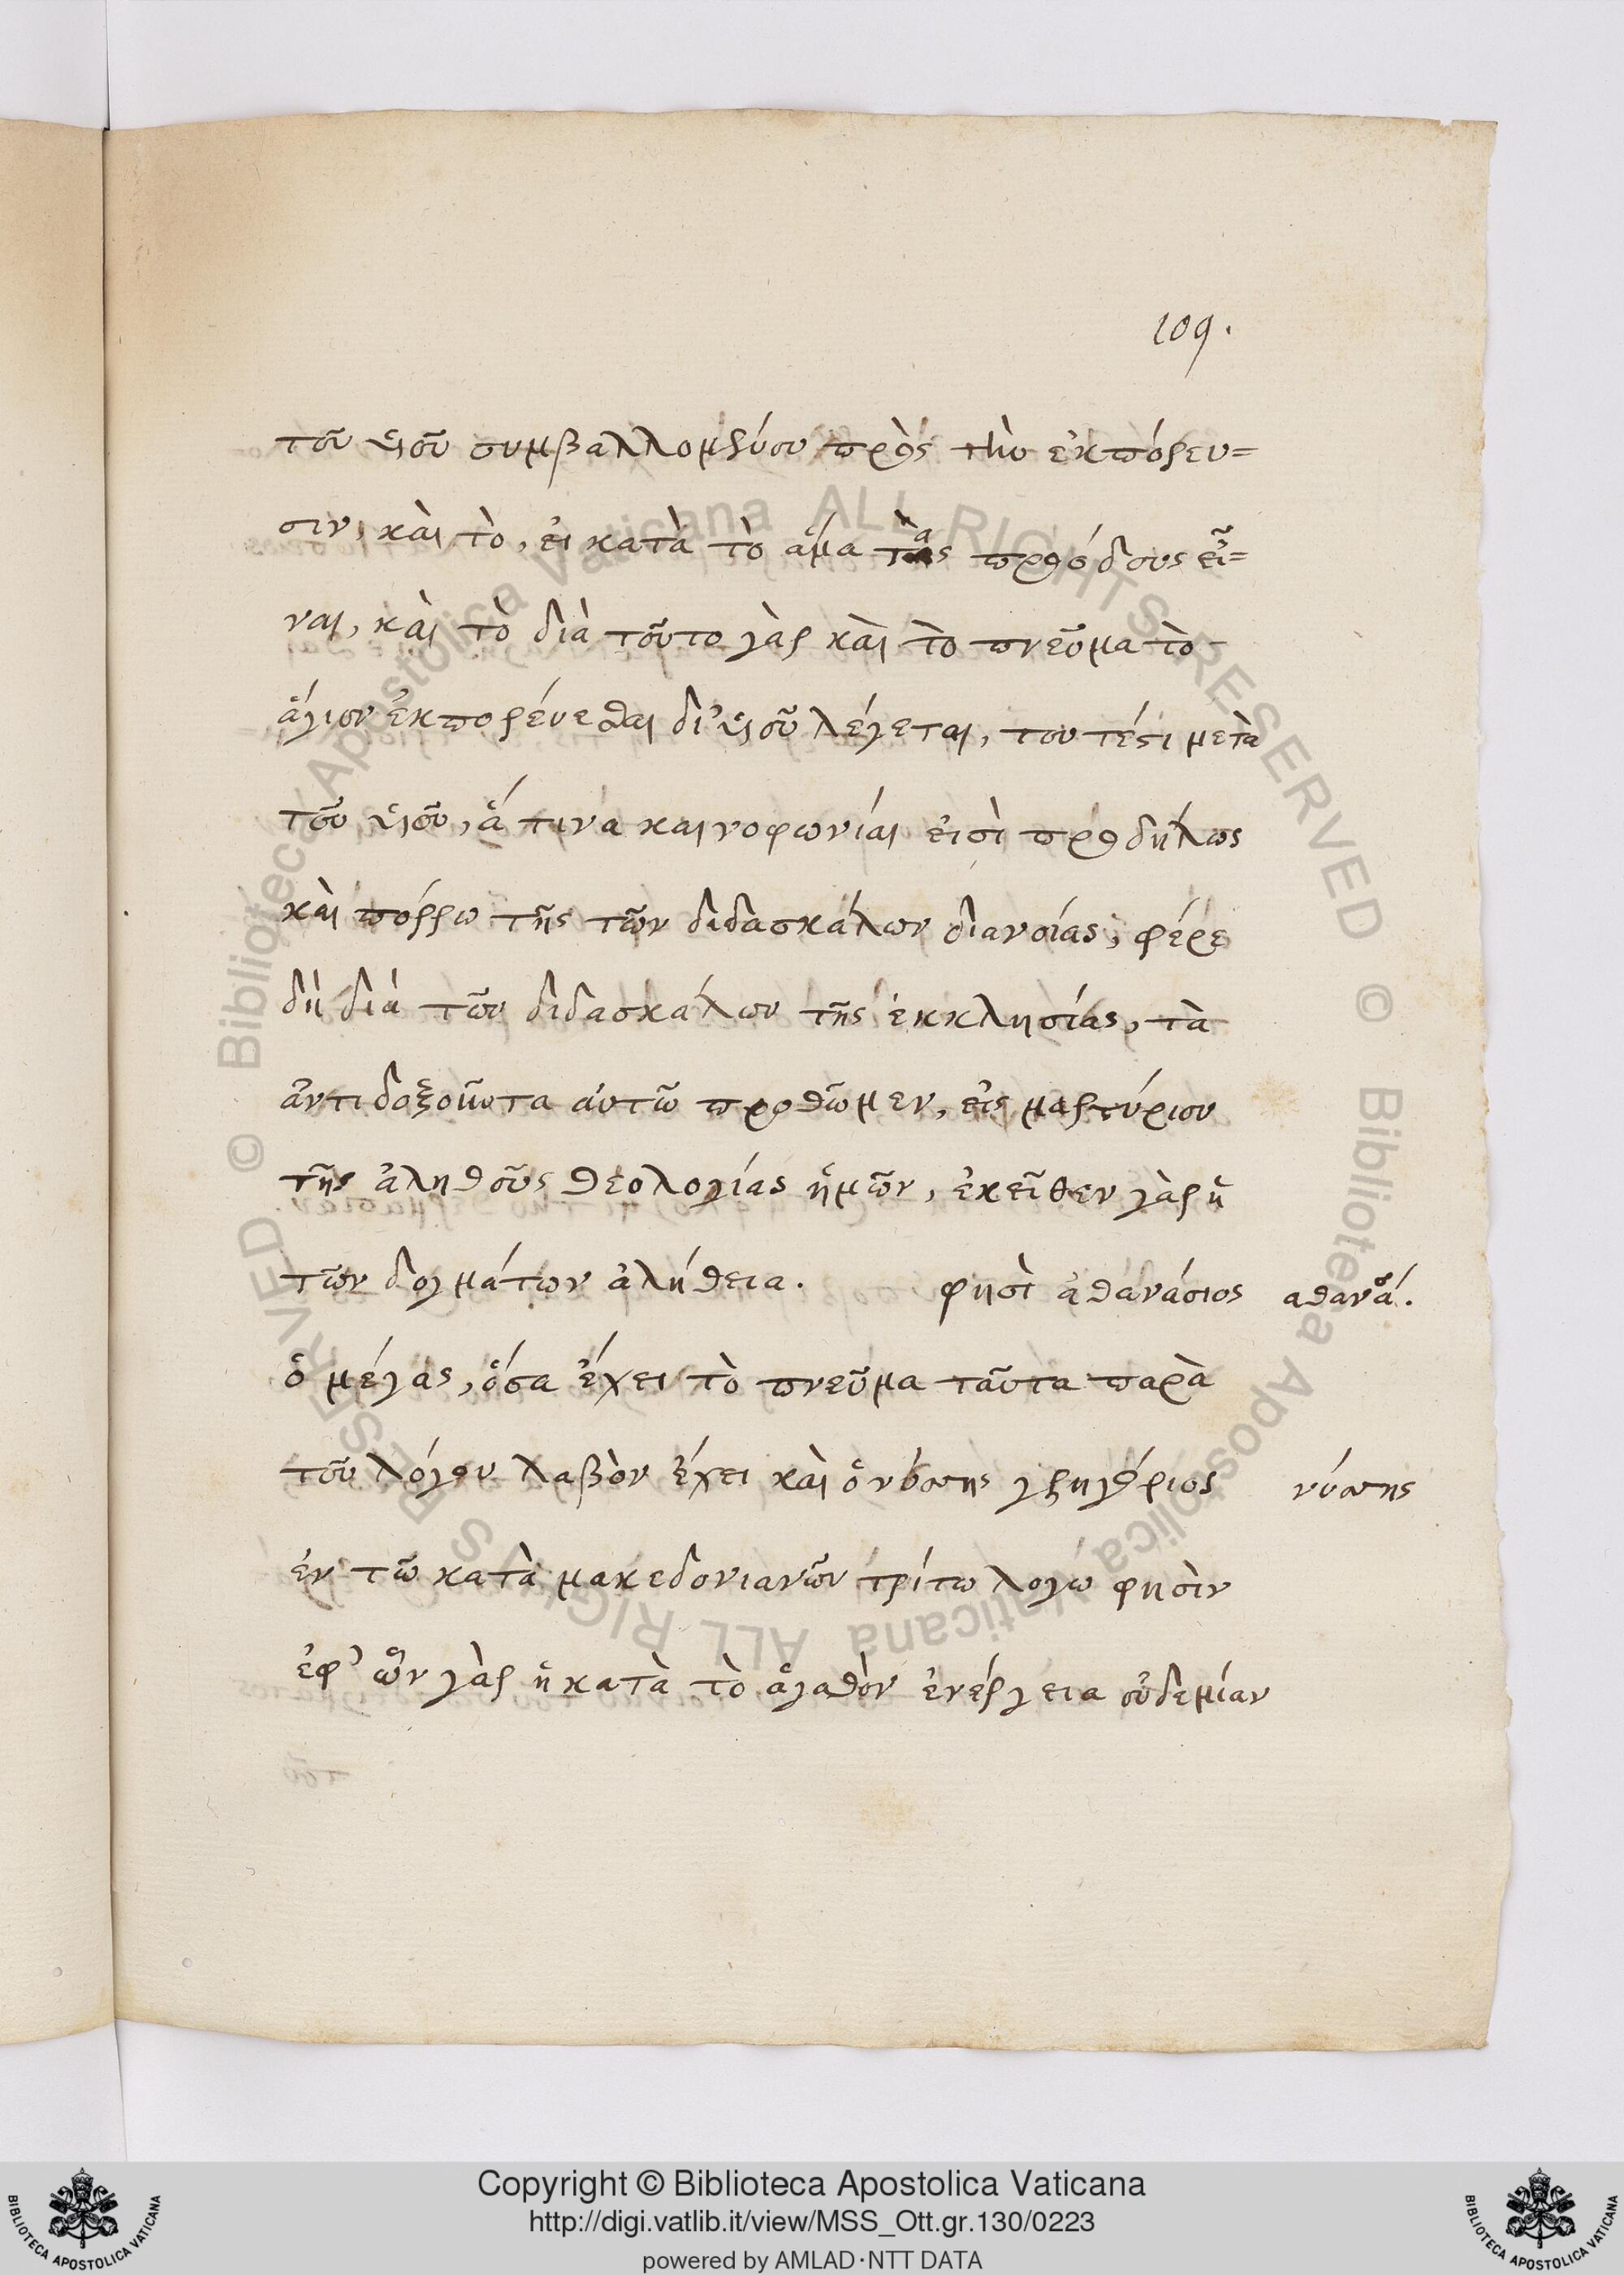 109.
τοῦ υἱοῦ συμβαλλομένου πρὸς τὴν ἐκπόρευ=
σιν, καὶ τὸ, εἰ κατὰ τὸ ἅμα τὰς προόδους εἶ=
ναι, καὶ τὸ διὰ τοῦτο γὰρ καὶ τὸ πνεῦμα τὸ
ἅγιον ἐκπορεύεσθαι δι' υἱοῦ λέγεται, τουτέστι μετὰ
τοῦ υἱοῦ, ἅ τινα καινοφωνίαι εἰσὶ προδήλως
καὶ πόρρω τῆς τῶν διδασκάλων διανοίας, φέρε
δὴ διὰ τῶν διδασκάλων τῆς ἐκκλησίας, τὰ
ἀντιδοξοῦντα αὐτῶ προθῶμεν, εἰς μαρτύριον
τῆς ἀληθοῦς θεολογίας ἡμῶν, ἐκεῖθεν γὰρ ἡ
τῶν δογμάτων ἀλήθεια. φησὶ ἀθανάσιος αθανα.
ὁ μέγας, ὅσα ἔχει τὸ πνεῦμα ταῦτα παρὰ
τοῦ λόγου λαβὸν ἔχει καὶ ὁ νύσσης γρηγόριος νύσσης
ἐν τῶ κατὰ μακεδονιανῶν τρίτω λογω φησὶν
ἐφ' ὧν γὰρ ἡ κατὰ τὸ ἀγαθὸν ἐνέργεια οὐδεμίαν
Copyright © Biblioteca Apostolica Vaticana
http://digi.vatlib.it/view/MSS_Ott.gr.130/0223
powered by AMLAD·NTT DATA
BIBLIOTECA APOSTOLICA VATICANA
BIBLIOTECA APOSTOLICA VATICANA
© Biblioteca Apostolica Vaticana ALL RIGHTS RESERVED
© Biblioteca Apostolica Vaticana ALL RIGHTS RESERVED